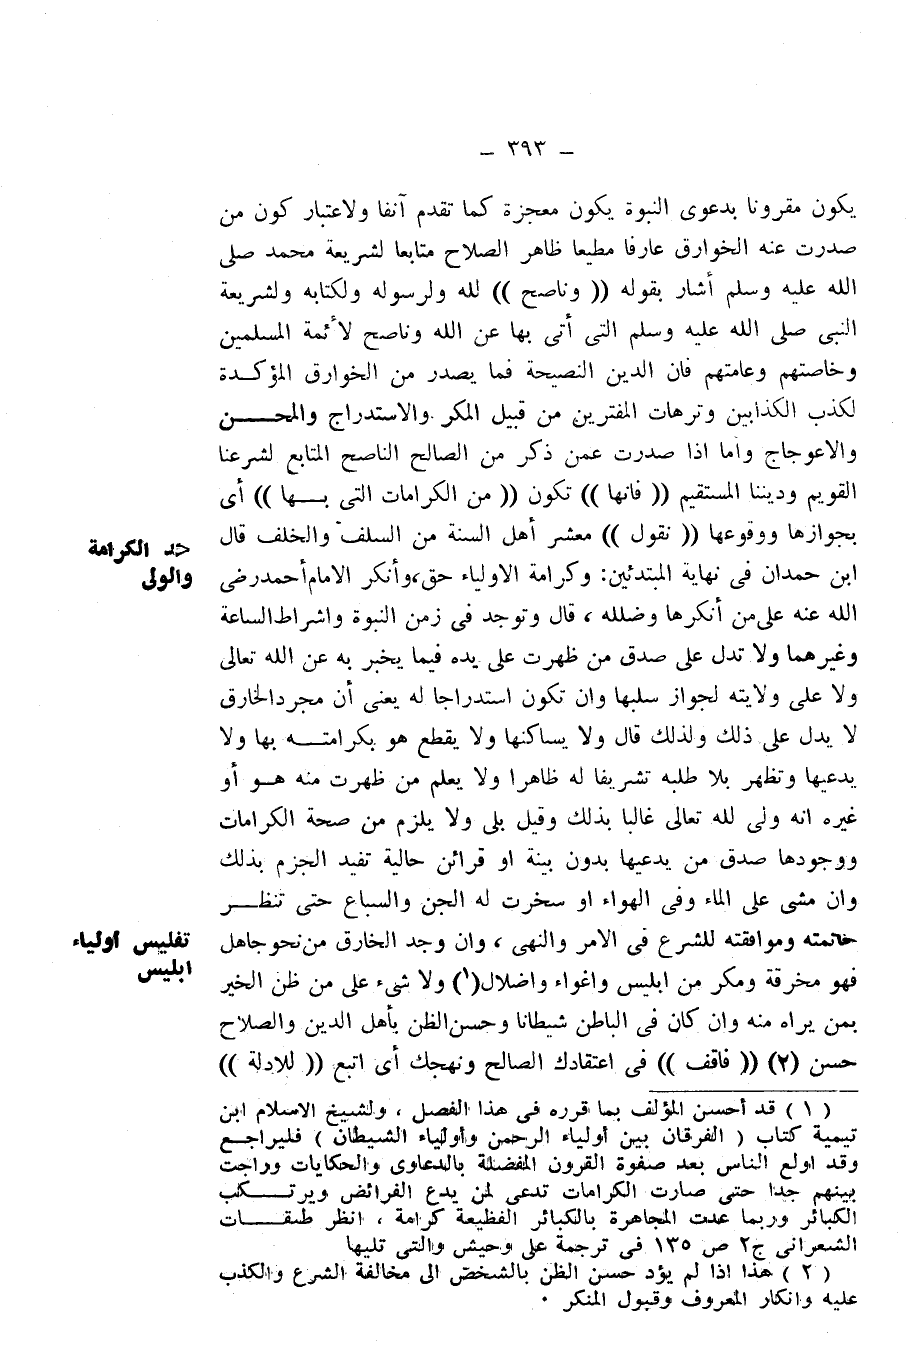 – ٣٩٣ –
يكون مقرونا بدعوى النبوة يكون معجزة كما تقدم آنفا ولاعتبار كون من
صدرت عنه الخوارق عارفا مطيعا ظاهر الصلاح متابعا لشريعة محمد صلى
الله عليه وسلم أشار بقوله (( وناصح )) لله ولرسوله ولكتابه ولشريعة
النبى صلى الله عليه وسلم التى أتى بها عن الله وناصح لأئمة المسلمين
وخاصتهم وعامتهم فان الدين النصيحة فما يصدر من الخوارق المؤكدة
لكذب الكذابين وترهات المفترين من قبيل المكر والاستدراج والمحن
والاعوجاج وأما اذا صدرت عمن ذكر من الصالح الناصح المتابع لشرعنا
القويم وديننا المستقيم (( فانها )) تكون (( من الكرامات التى بها )) أى
بجوازها ووقوعها (( نقول )) معشر أهل السنة من السلف والخلف قال
حد الكرامة
والولى
ابن حمدان فى نهاية المبتدئين: وكرامة الاولياء حق، وأنكر الامام أحمد رضى
الله عنه على من أنكرها وضلله ، قال وتوجد فى زمن النبوة واشراط الساعة
وغيرهما ولا تدل على صدق من ظهرت على يده فيما يخبر به عن الله تعالى
ولا على ولايته لجواز سلبها وان تكون استدراجا له يعنى أن مجرد الخارق
لا يدل على ذلك ولذلك قال ولا يساكنها ولا يقطع هو بكرامته بها ولا
يدعيها وتظهر بلا طلبه تشريفا له ظاهرا ولا يعلم من ظهرت منه هو أو
غيره انه ولى لله تعالى غالبا بذلك وقيل بلى ولا يلزم من صحة الكرامات
ووجودها صدق من يدعيها بدون بينة او قرائن حالية تفيد الجزم بذلك
وان مشى على الماء وفى الهواء او سخرت له الجن والسباع حتى تنظر
خاتمته وموافقته للشرع فى الامر والنهى ، وان وجد الخارق من نحو جاهل
تفليس أولياء
ابليس
فهو مخرقة ومكر من ابليس واغواء واضلال(١) ولا شىء على من ظن الخير
بمن يراه منه وان كان فى الباطن شيطانا وحسن الظن بأهل الدين والصلاح
حسن (٢) (( فاقف )) فى اعتقادك الصالح ونهجك أى اتبع (( للادلة ))
( ١ ) قد أحسن المؤلف بما قرره فى هذا الفصل ، ولشيخ الاسلام ابن
تيمية كتاب ( الفرقان بين أولياء الرحمن وأولياء الشيطان ) فليراجع
وقد اولع الناس بعد صفوة القرون المفضلة بالدعاوى والحكايات وراجت
بينهم جدا حتى صارت الكرامات تدعى لمن يدع الفرائض ويرتكب
الكبائر وربما عدت المجاهرة بالكبائر الفظيعة كرامة ، انظر طبقات
الشعرانى ج٢ ص ١٣٥ فى ترجمة على وحيش والتى تليها
( ٢ ) هذا اذا لم يؤد حسن الظن بالشخص الى مخالفة الشرع والكذب
عليه وانكار المعروف وقبول المنكر .